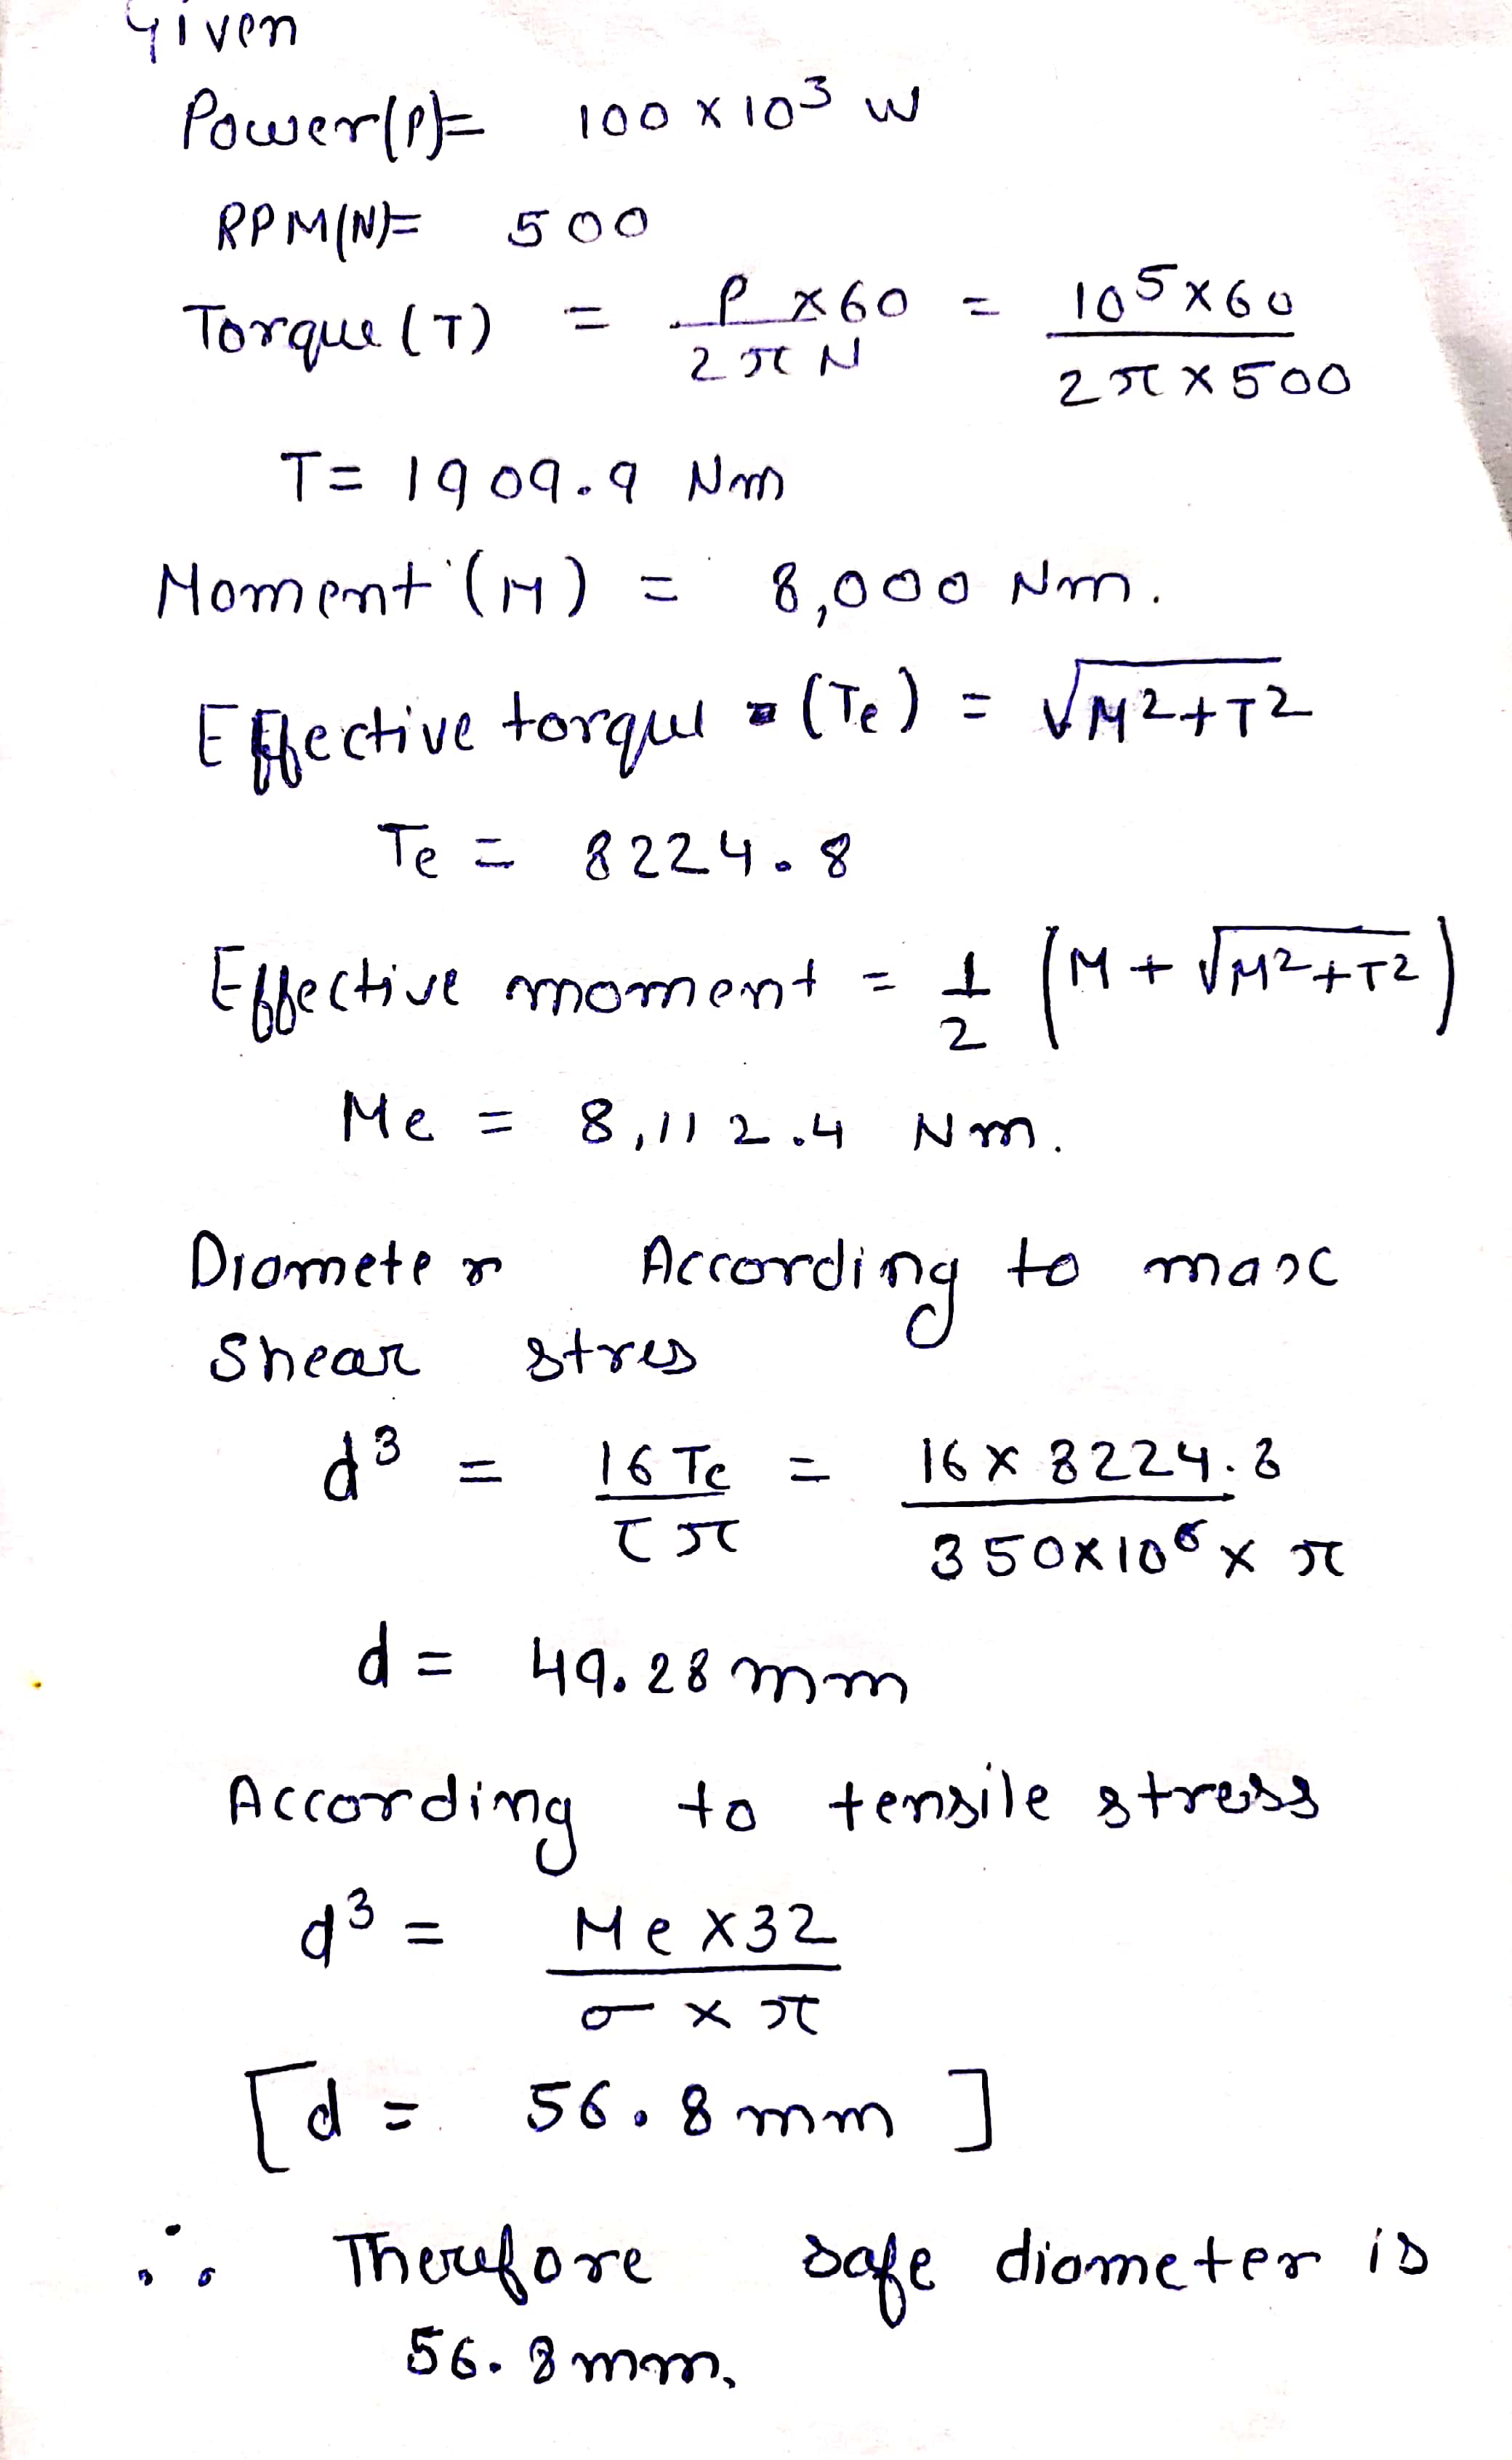 Given
Power(P)= 100 x 10³ W
RPM(N)= 500
Torque (T) = P x 60 / 2πN = 10⁵ x 60 / 2π x 500
T = 1909.9 Nm
Moment (M) = 8,000 Nm.
Effective torque (Te) = √M²+T²
Te = 8224.8
Effective moment = 1/2 (M + √M²+T²)
Me = 8,112.4 Nm.
Diameter According to max
shear stres
d³ = 16 Te / τπ = 16 x 8224.8 / 350x10⁶ x π
d = 49.28 mm
According to tensile stress
d³ = Me x 32 / σ x π
[d = 56.8 mm]
∴ Therefore safe diameter is
56.8 mm.